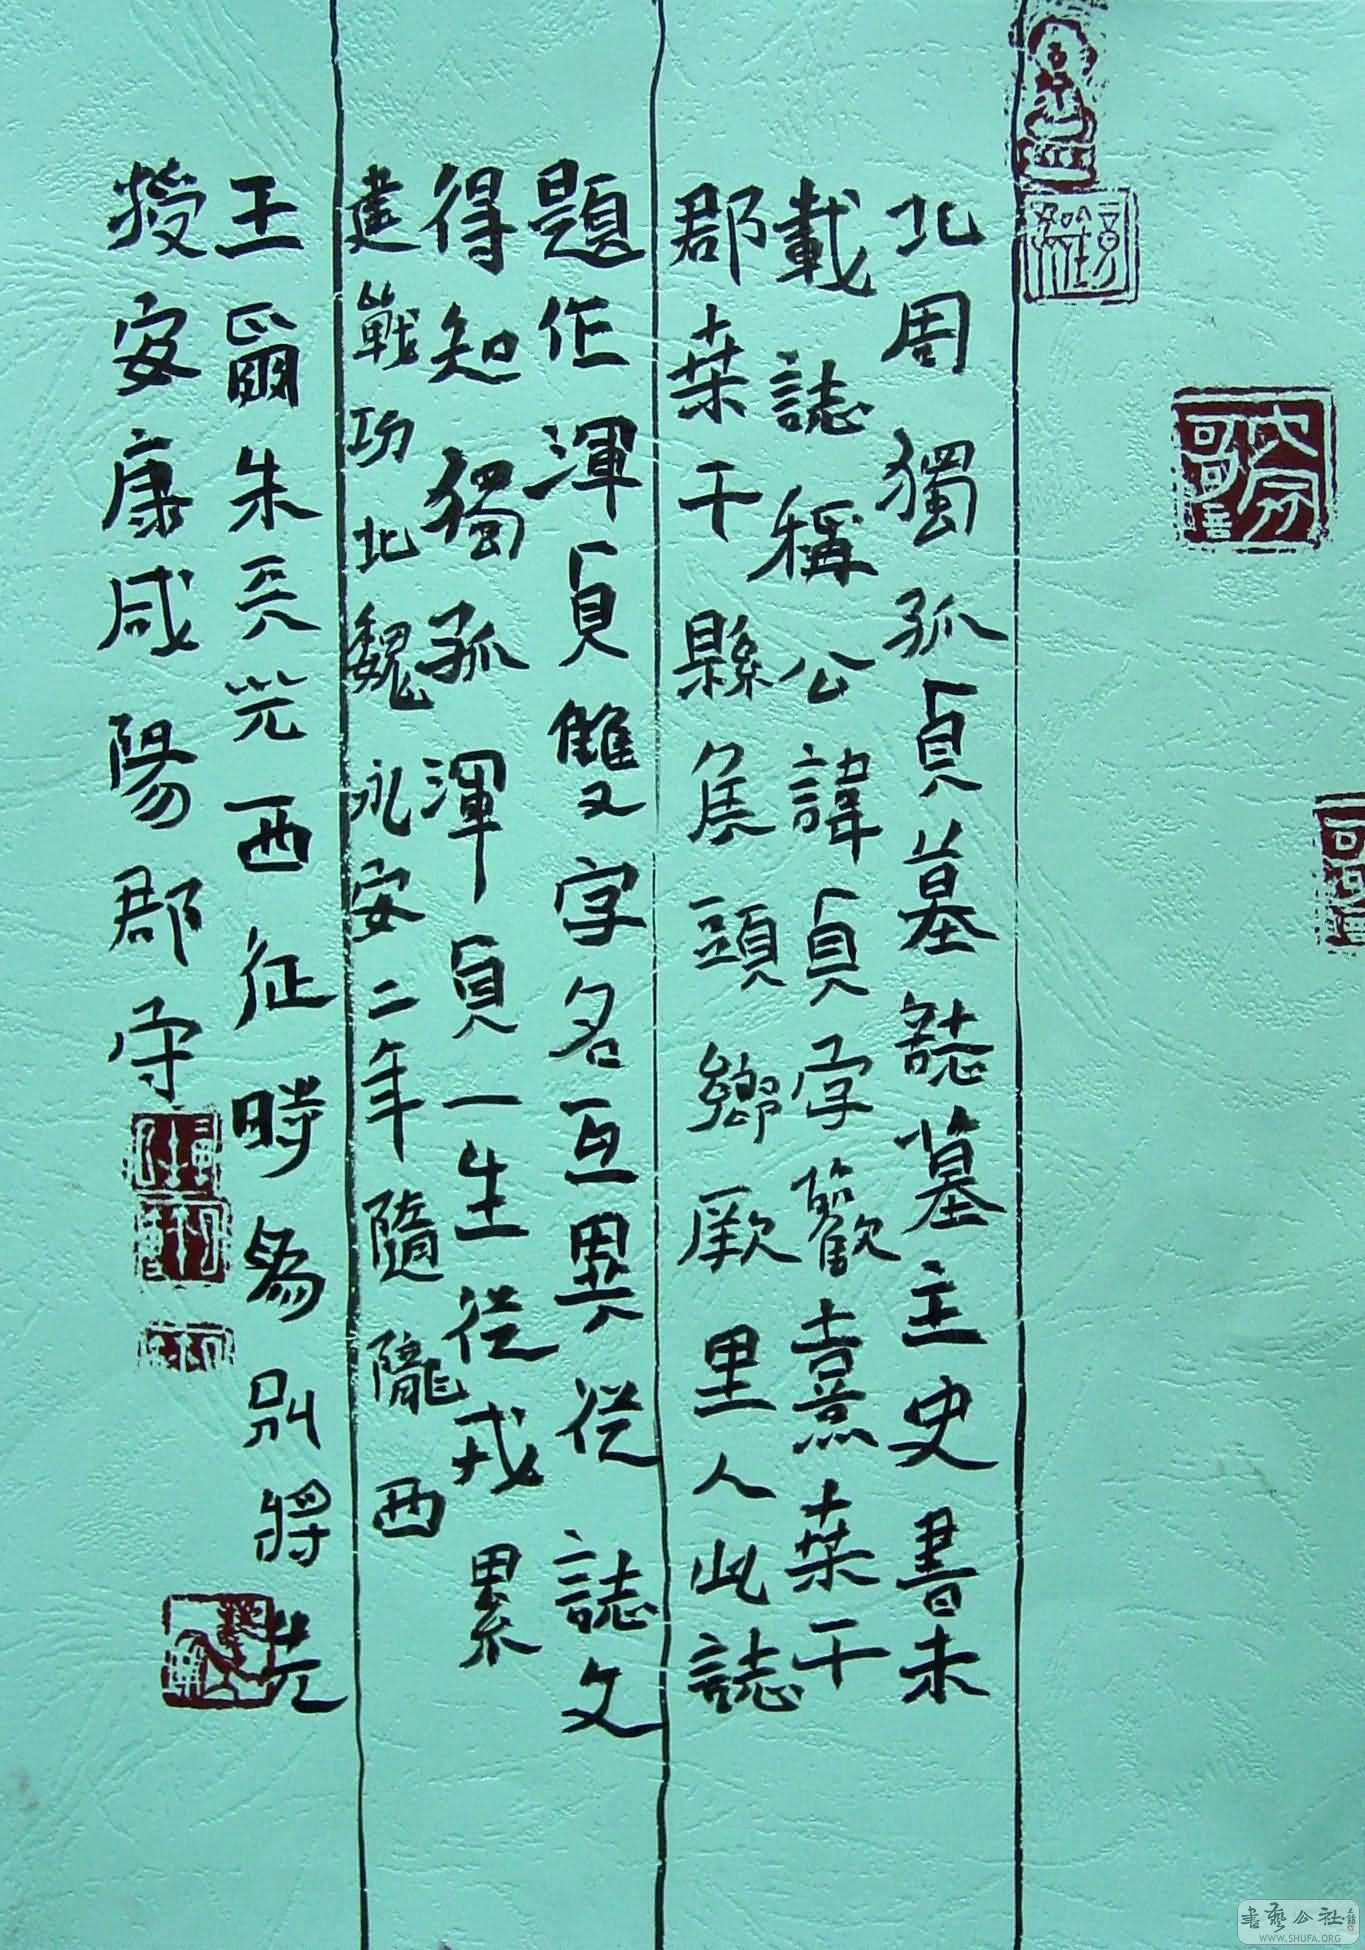 北周獨孤貞墓誌墓主史書未
載誌稱公諱貞字歡憙桒干
郡桒干縣侯頭鄉厥里人此誌
題作渾貞雙字名互異從誌文
得知獨孤渾貞一生從戎累
建戰功北魏永安二年隨隴西
王爾朱天光西征時為別將先
授安康咸陽郡守
書藝公社
WWW.SHUFA.ORG